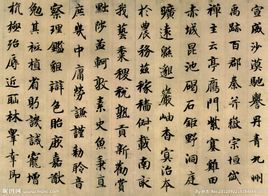 宣威沙漠馳譽丹青九州
禹跡百郡秦并嶽宗恒岱
禪主云亭雁門紫塞雞田
赤城昆池碣石鉅野洞庭
曠遠綿邈巖岫杳冥治本
於農務茲稼穡俶載南畝
我藝黍稷稅熟貢新勸賞
黜陟孟軻敦素史魚秉直
庶幾中庸勞謙謹敕聆音
察理鑑貌辨色貽厥嘉猷
勉其祗植省躬譏誡寵增
抗極殆辱近恥林皋幸即